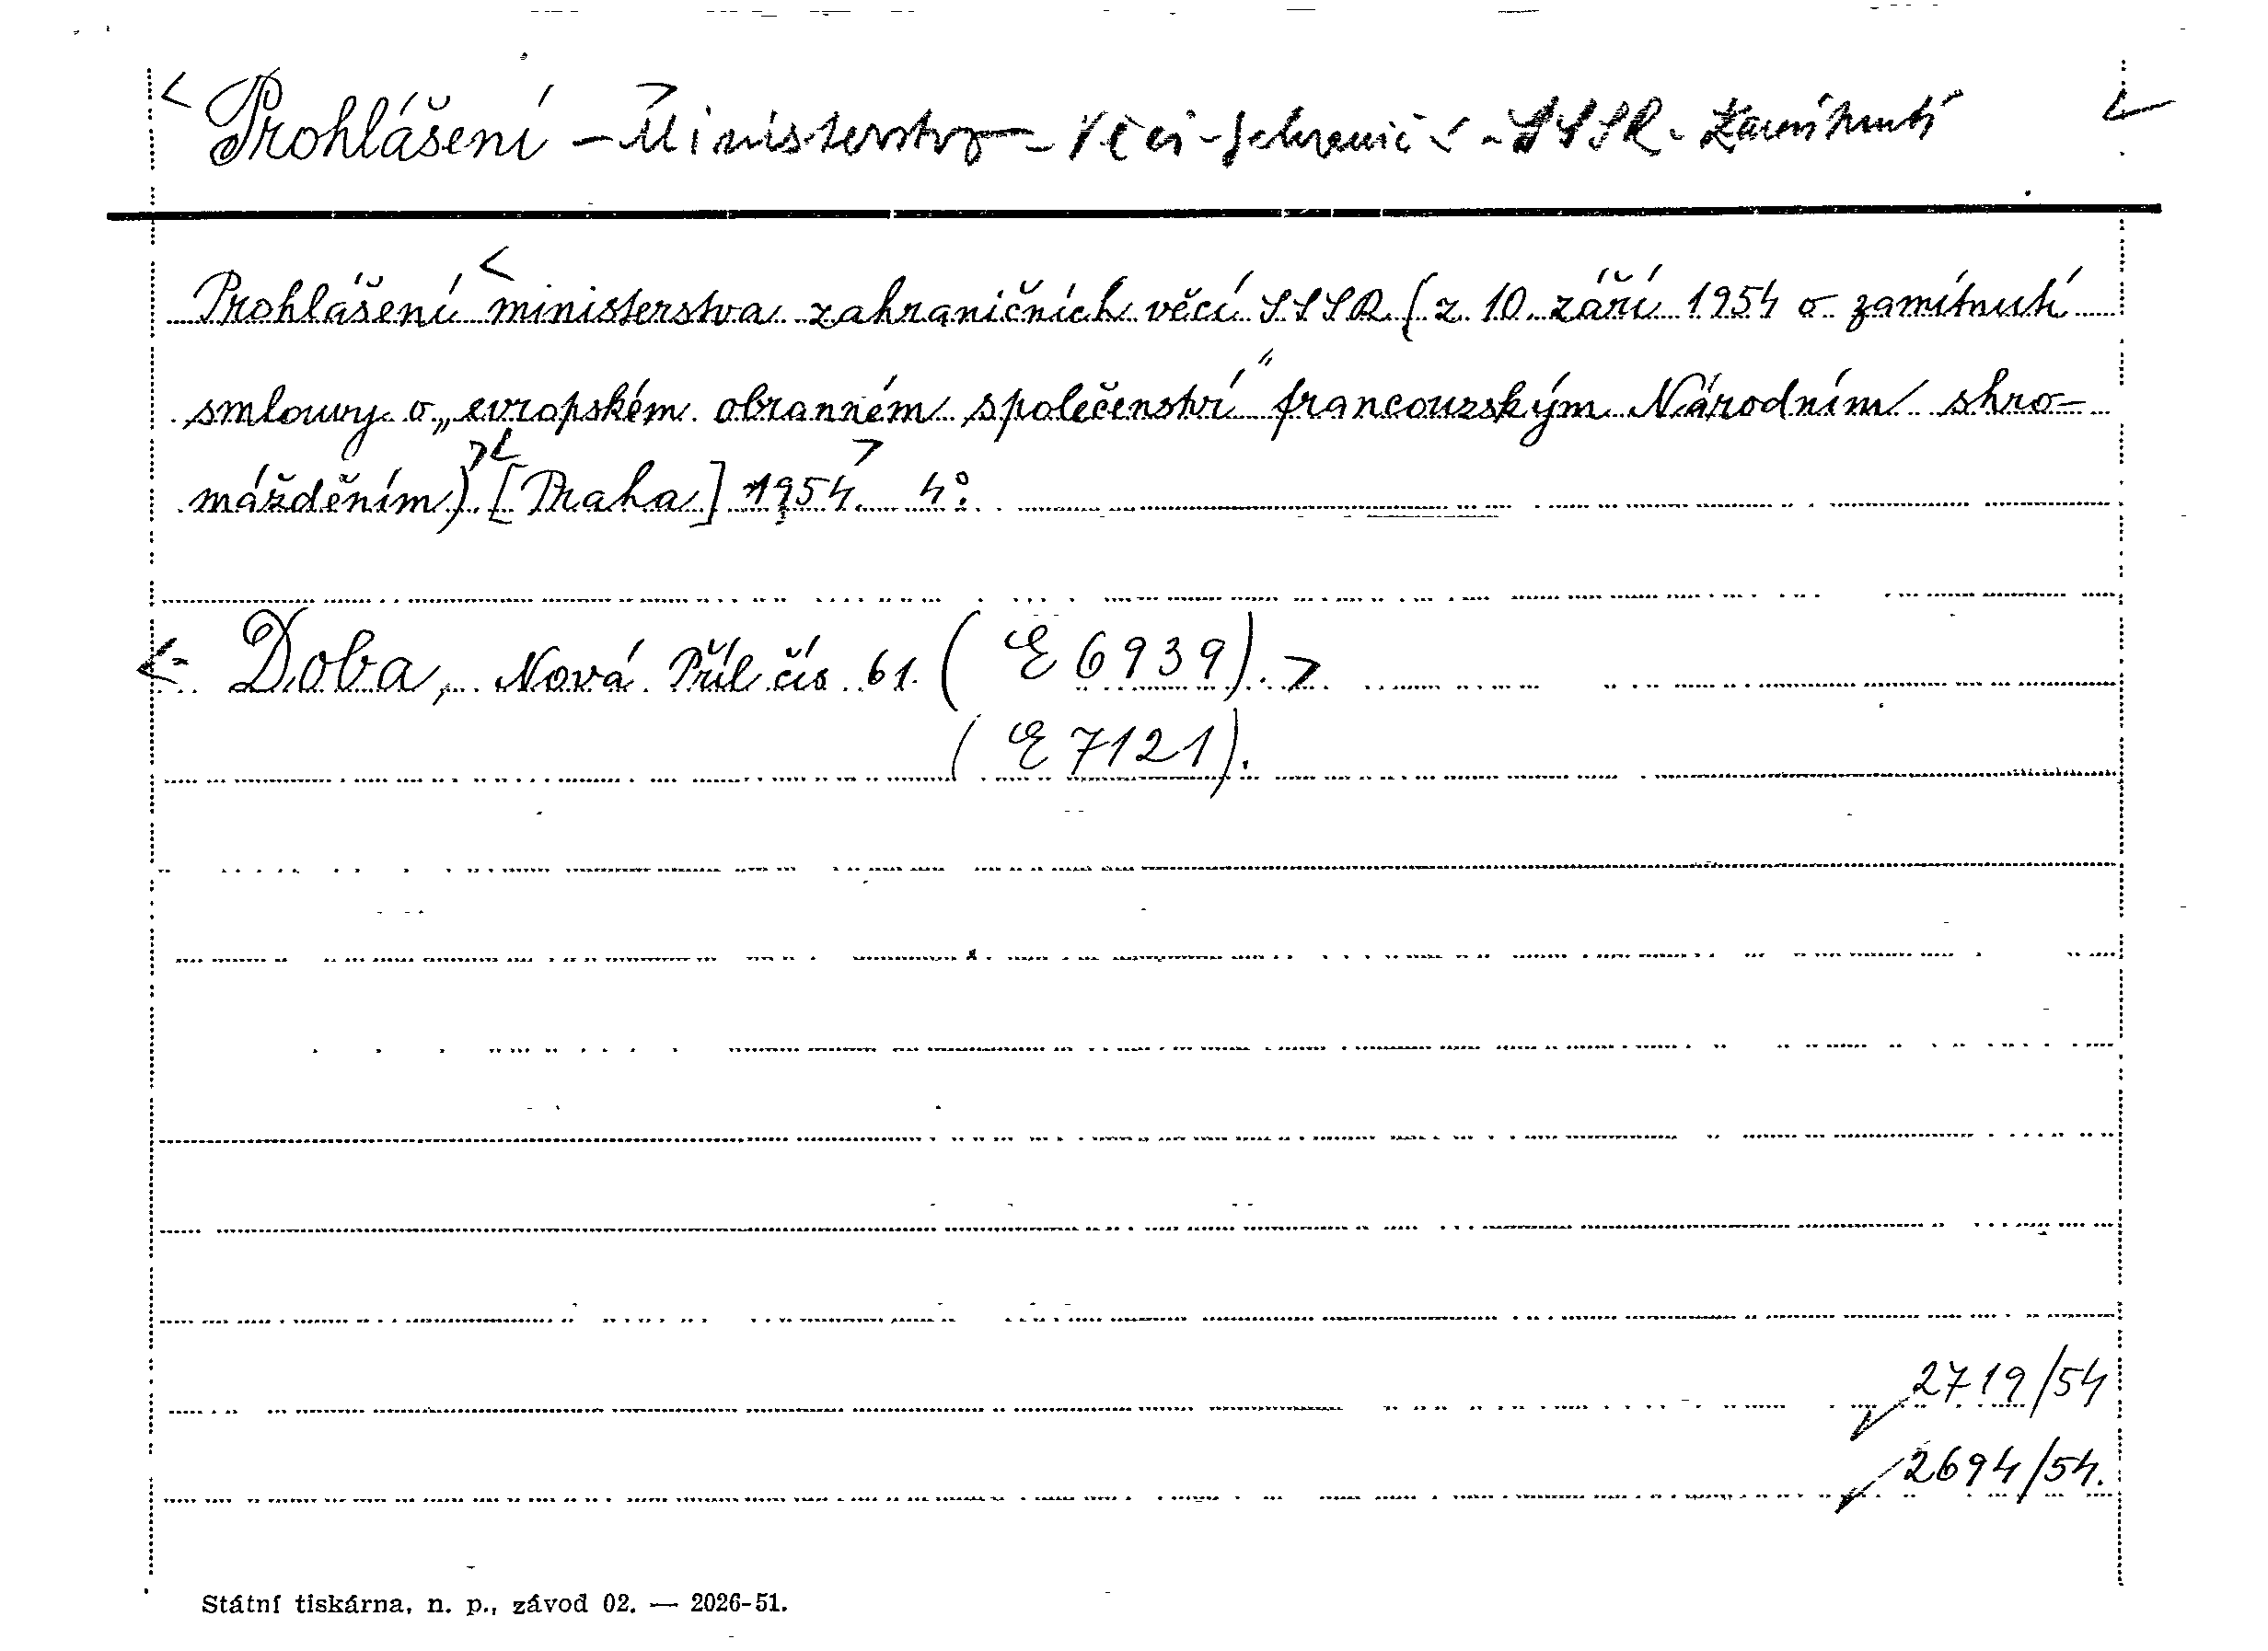 < Prohlášení - Ministerstvo - Věci - - SSSR - Zamítnutí
Prohlášení ministerstva zahraničních věcí SSSR (z 10. září 1954 o zamítnutí
smlouvy o „evropském obranném společenství" francouzským Národním shro-
mážděním). [Praha] 1954. 4°.
<- Doba, Nová. Příl. čís. 61. (E 6939). >
(E 7121).
2719/54
2694/54.
Státní tiskárna, n. p., závod 02. — 2026-51.